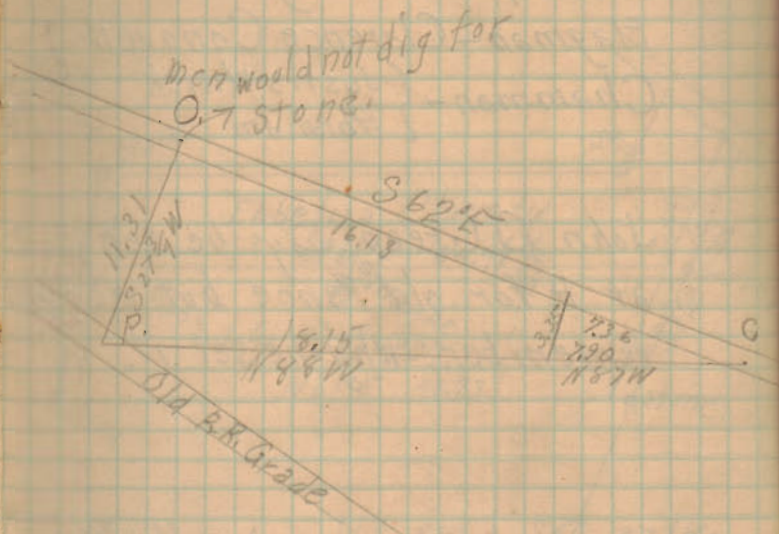 men would not dig for
O. 7 stone.
S 62°E
16.13
11.31
S 27 3/4 W
P.
18.15
N 88 W
3.35
7.36
7.90
N 87 W
C
Old R.R. Grade